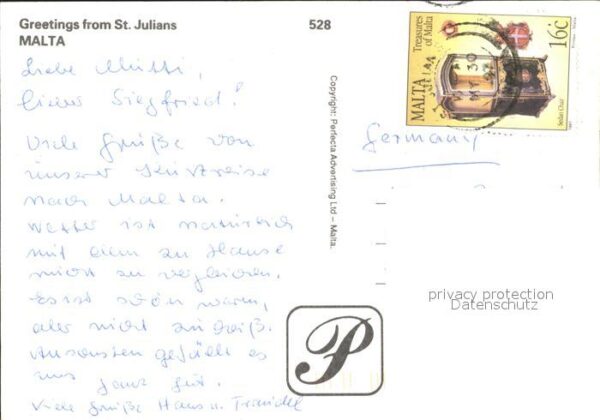 Greetings from St. Julians
MALTA
528
Liebe Mutti,
lieber Siegfried!
Viele Grüße von
unserer Kurzreise
nach Malta.
Wetter ist natürlich
mit dem zu Hause
nicht zu vergleichen.
Es ist schön warm,
aber nicht zu heiß.
Ansonsten gefällt es
uns ganz gut.
Viele Grüße Hans u. Traudel
Copyright: Perfecta Advertising Ltd – Malta.
P
MALTA
Treasures
of Malta
16c
Sedan Chair
Germany
privacy protection
Datenschutz